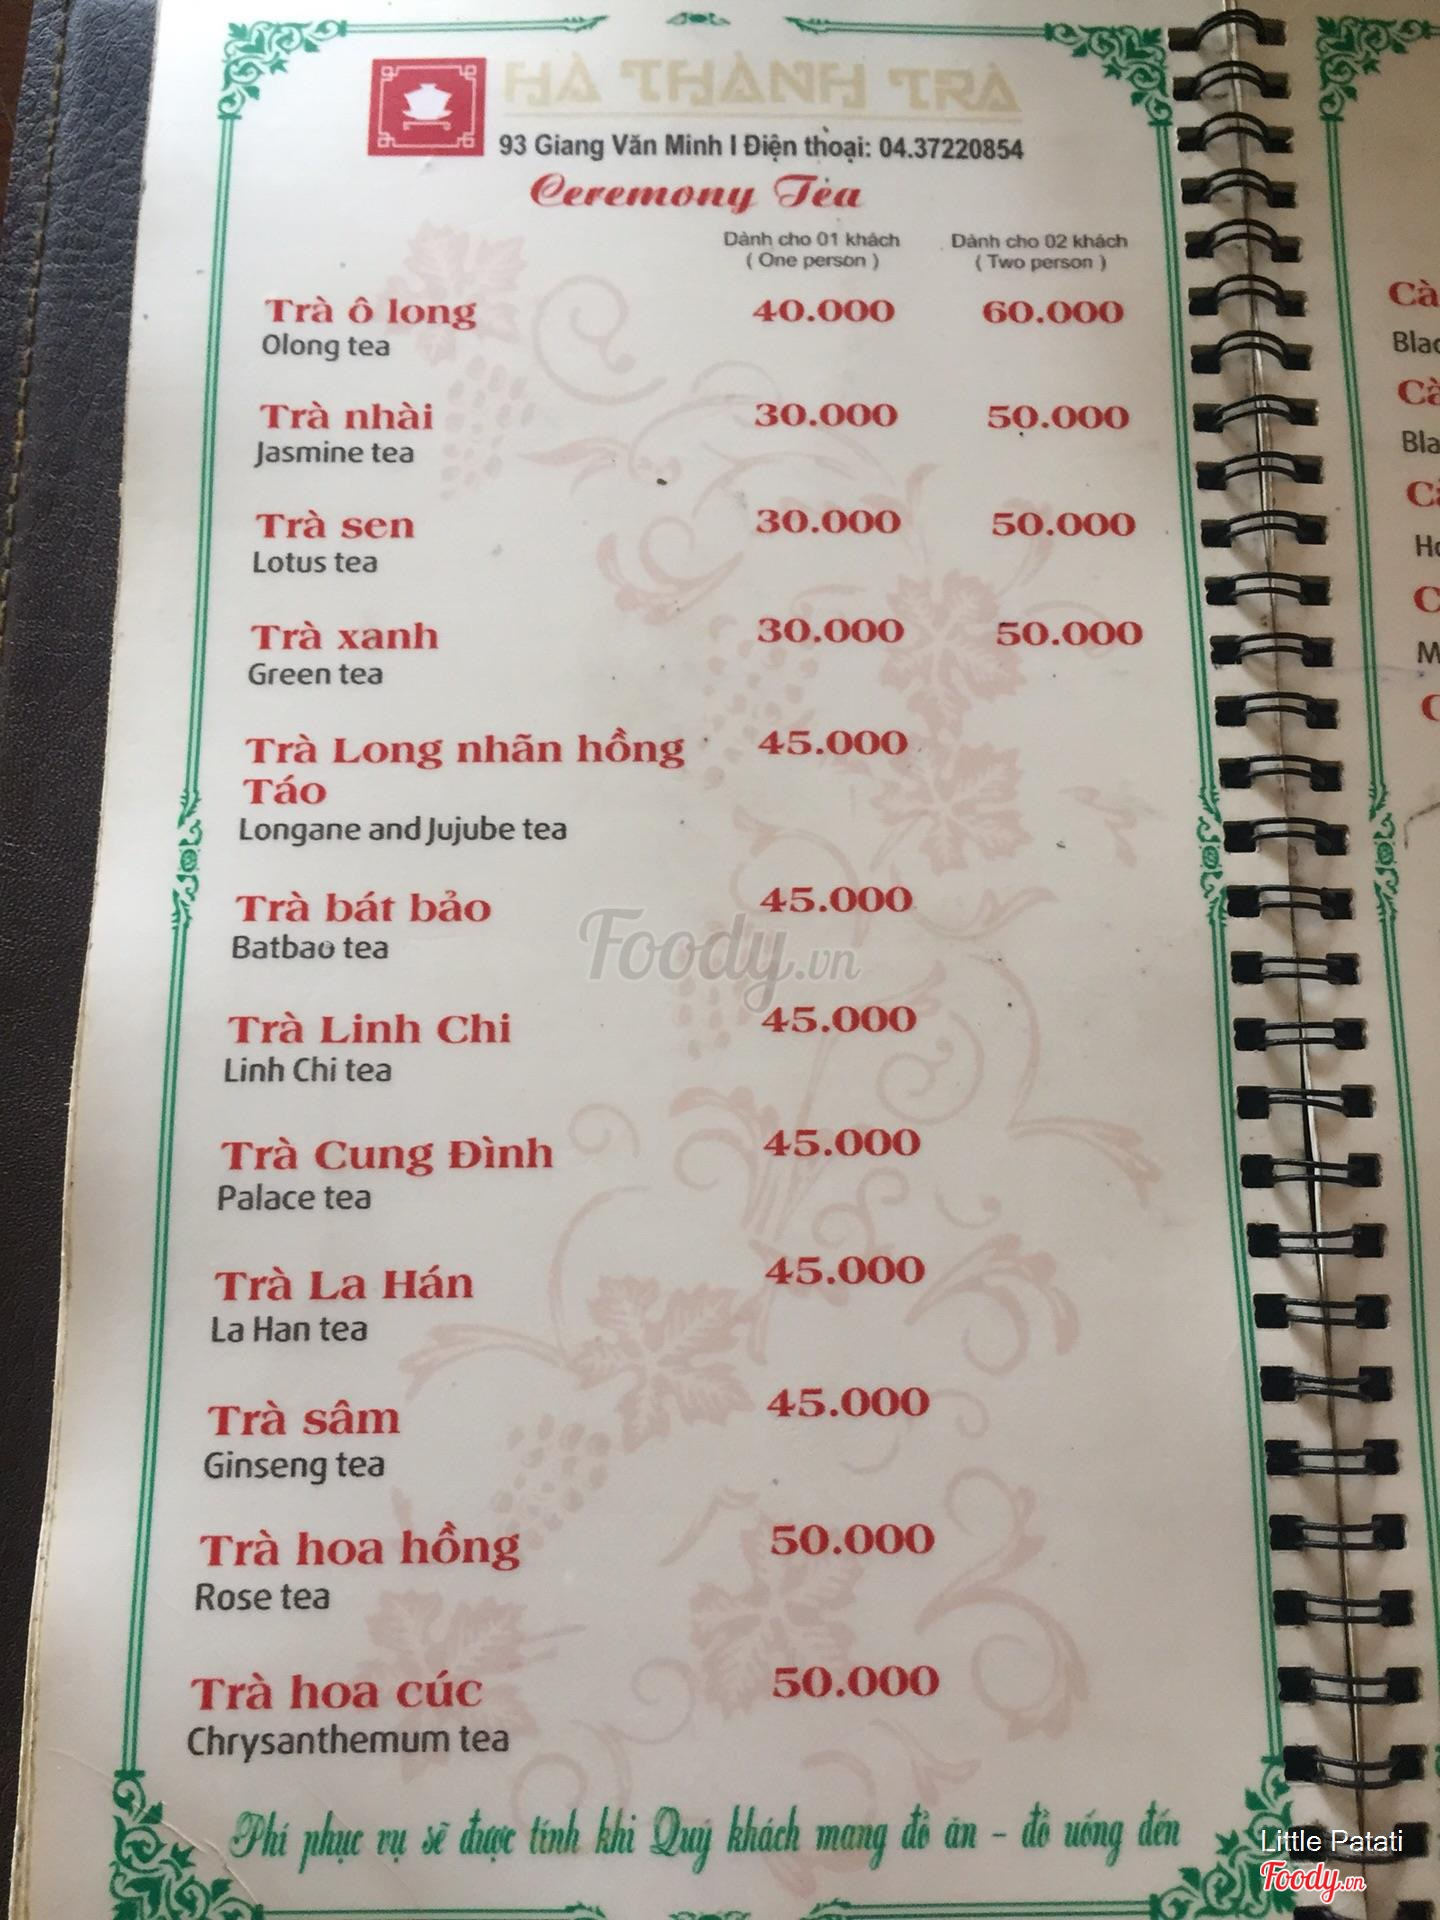 HÀ THÀNH TRÀ
93 Giang Văn Minh I Điện thoại: 04.37220854
Ceremony Tea
Dành cho 01 khách Dành cho 02 khách
( One person ) ( Two person )
Trà ô long 40.000 60.000
Olong tea
Trà nhài 30.000 50.000
Jasmine tea
Trà sen 30.000 50.000
Lotus tea
Trà xanh 30.000 50.000
Green tea
Trà Long nhãn hồng 45.000
Táo
Longane and Jujube tea
Trà bát bảo 45.000
Batbao tea
Foody.vn
Trà Linh Chi 45.000
Linh Chi tea
Trà Cung Đình 45.000
Palace tea
Trà La Hán 45.000
La Han tea
Trà sâm 45.000
Ginseng tea
Trà hoa hồng 50.000
Rose tea
Trà hoa cúc 50.000
Chrysanthemum tea
Phí phục vụ sẽ được tính khi Quý khách mang đồ ăn - đồ uống đến
Little Patati
Foody.vn